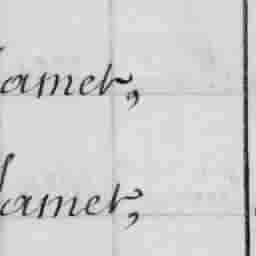 amet,
amet,